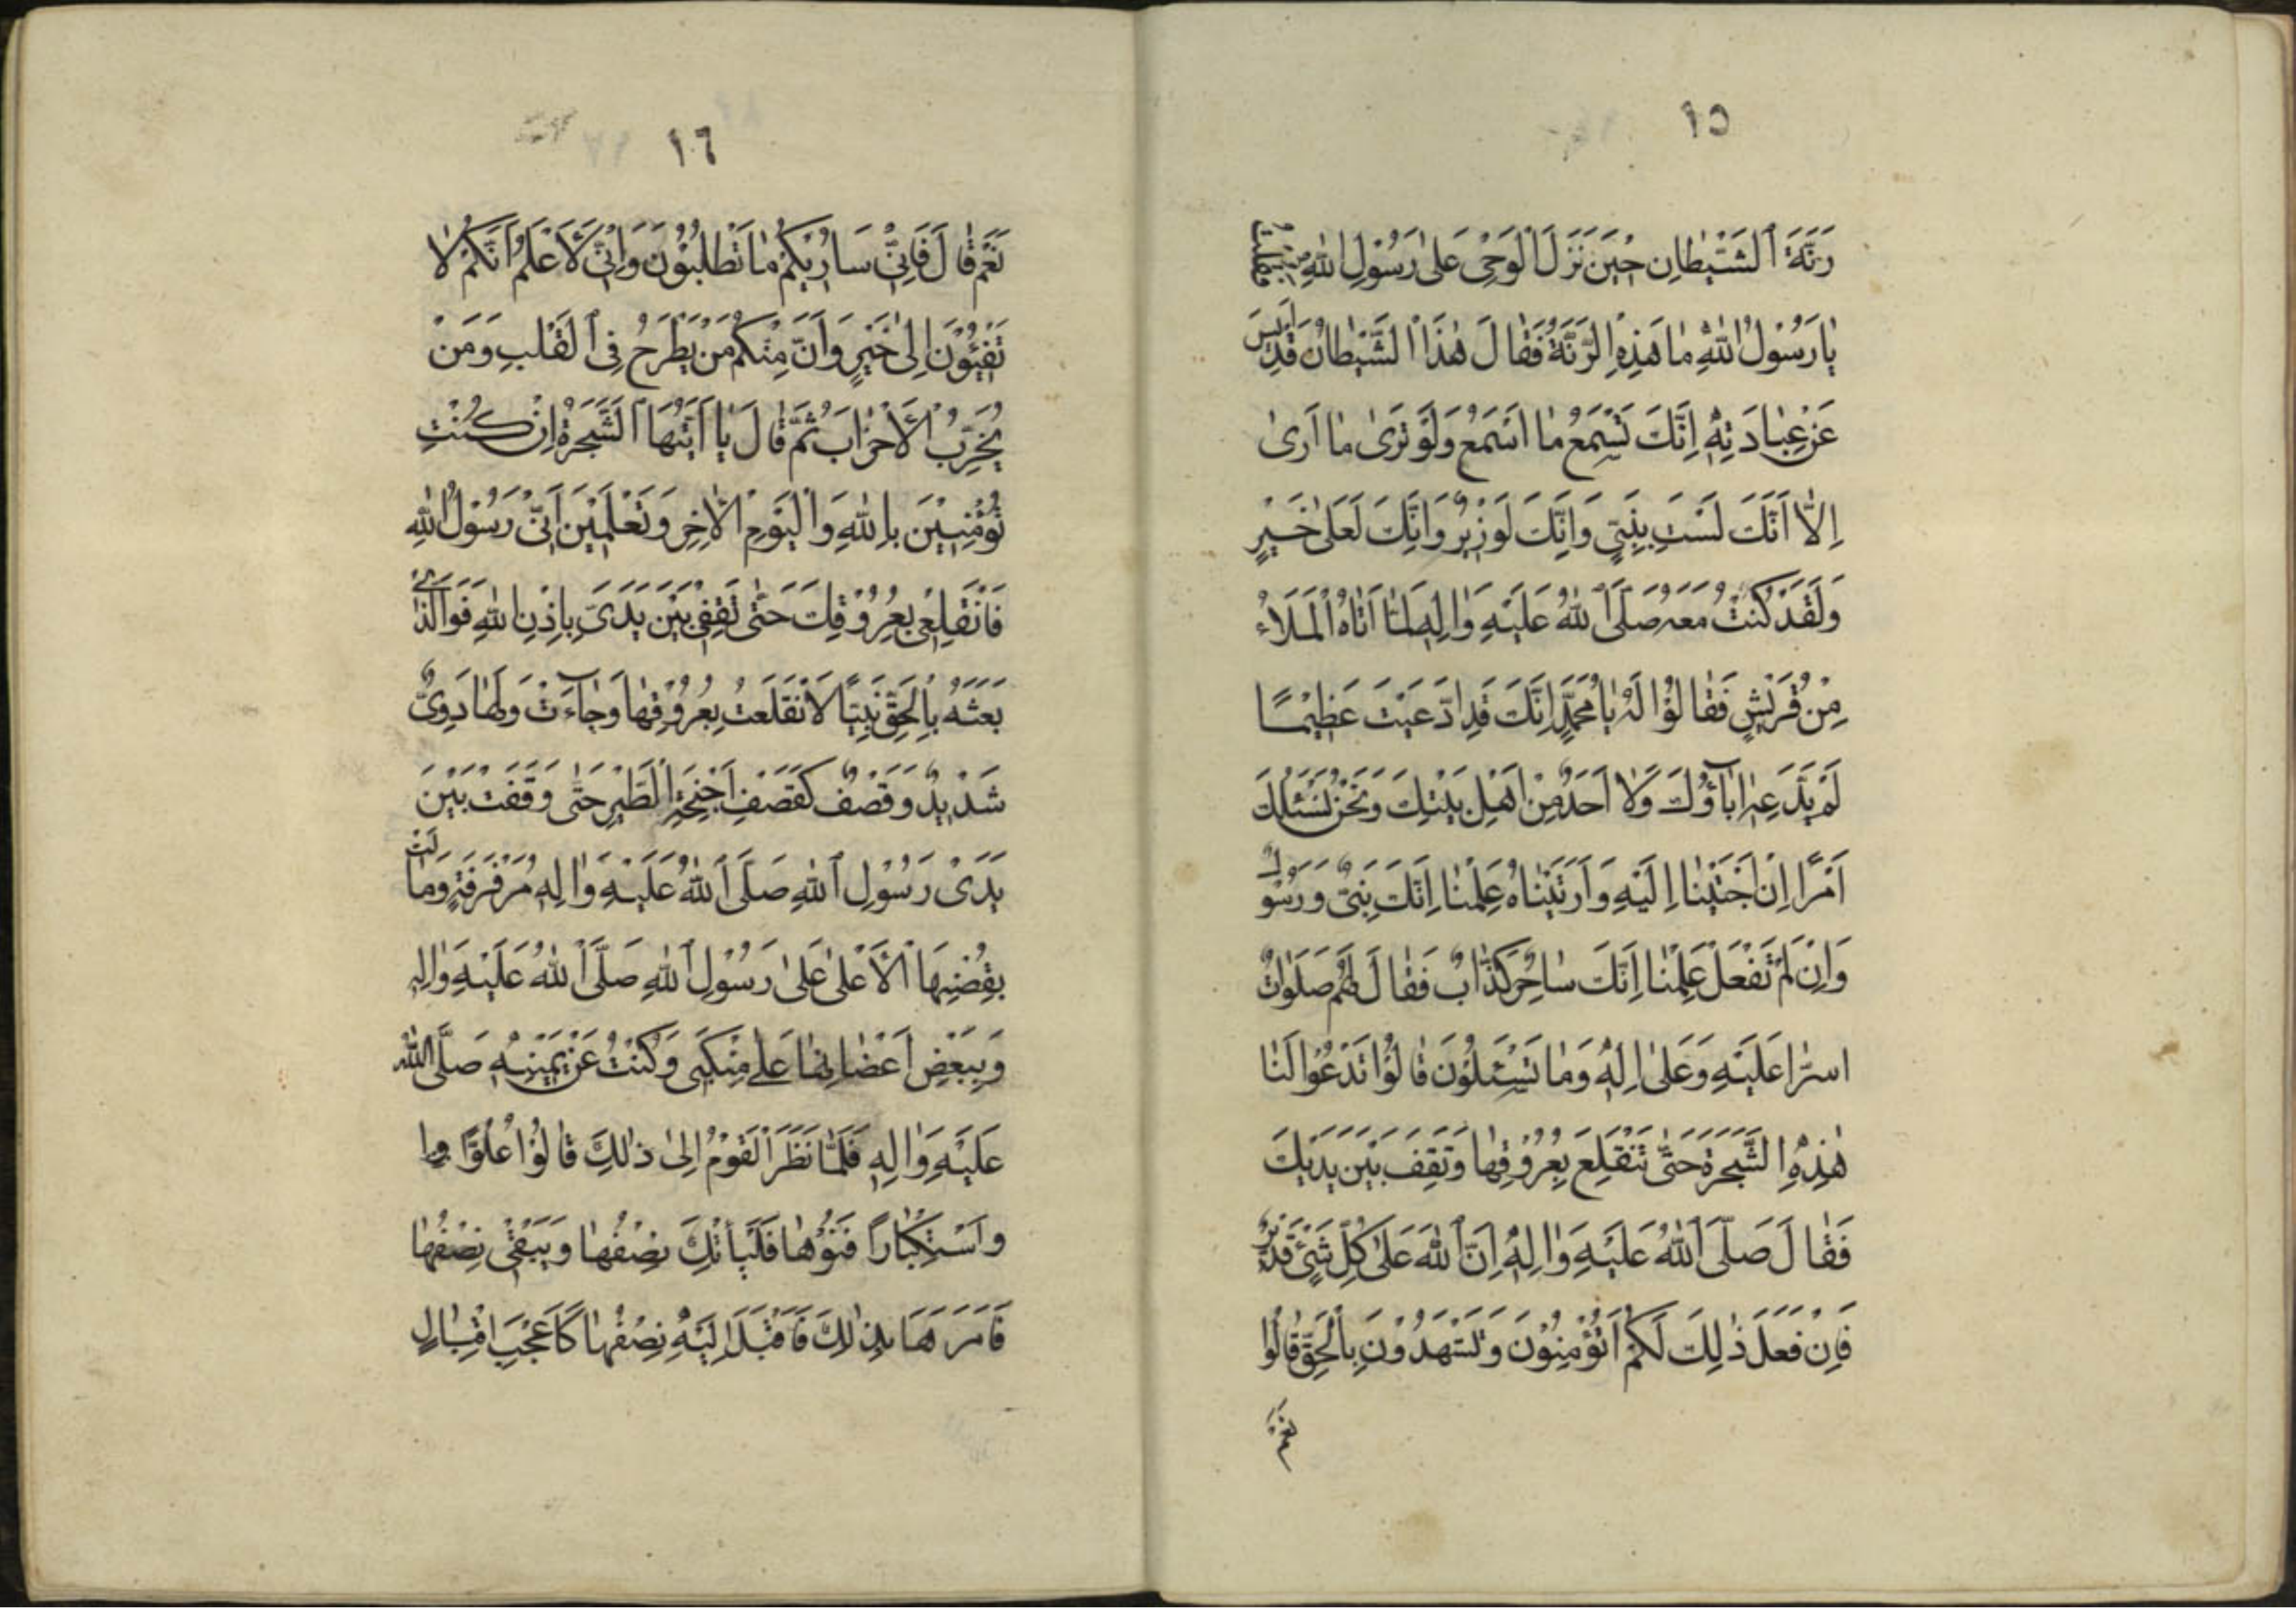 ١٥
رَنَّةَ ٱلشَّيْطٰانِ حِيْنَ نَزَلَ الْوَحْىُ عَلىٰ رَسُوْلِ اللهِ فقلت
يٰا رَسُوْلَ اللهِ مٰا هَذِهِ الرَّنَّةُ فَقٰالَ هٰذَا الشَّيْطٰانُ قَدْ اَيِسَ
عَنْ عِبٰادَتِهِ اِنَّكَ تَسْمَعُ مٰا اَسْمَعُ وَلَوْ تَرىٰ مٰا اَرىٰ
اِلّٰا اَنَّكَ لَسْتَ بِنَبِيٍّ وَاِنَّكَ لَوَزِيْرٌ وَاِنَّكَ لَعَلىٰ خَيْرٍ
وَلَقَدْ كُنْتُ مَعَهُ صَلَّى اَللهُ عَلَيْهِ وَاٰلِهِ لَمّٰا اَتٰاهُ الْمَلَاءُ
مِنْ قُرَيْشٍ فَقٰالُوْا لَهُ يٰا مُحَمَّدُ اِنَّكَ قَدِ ادَّعَيْتَ عَظِيْمًا
لَمْ يَدَّعِهِ اٰبٰآؤُكَ وَلٰا اَحَدٌ مِنْ اَهْلِ بَيْتِكَ وَنَحْنُ نَسْئَلُكَ
اَمْرًا اِنْ اَجَبْتَنٰا اِلَيْهِ وَاَرَيْتَنٰاهُ عَلِمْنٰا اِنَّكَ نَبِىٌّ وَرَسُوْلٌ
وَاِنْ لَمْ تَفْعَلْ عَلِمْنٰا اِنَّكَ سٰاحِرٌ كَذّٰابٌ فَقٰالَ لَهُمْ صَلَوٰاتُ
اللهِ عَلَيْهِ وَعَلىٰ اٰلِهِ وَمٰا تَسْئَلُوْنَ قٰالُوْا تَدْعُوْا لَنٰا
هٰذِهِ الشَّجَرَةَ حَتّٰى تَنْقَلِعَ بِعُرُوْقِهٰا وَتَقِفَ بَيْنَ يَدَيْكَ
فَقٰالَ صَلَّى اَللهُ عَلَيْهِ وَاٰلِهِ اِنَّ ٱللهَ عَلىٰ كُلِّ شَيْئٍ قَدِيْرٌ
فَاِنْ فَعَلَ ذٰلِكَ لَكُمْ اَتُؤْمِنُوْنَ وَتَشْهَدُوْنَ بِالْحَقِّ قٰالُوْا
نَعَمْ
١٦
نَعَمْ قٰالَ فَاِنِّىْ سَاُرِيْكُمْ مٰا تَطْلُبُوْنَ وَاِنِّىْ لَاَعْلَمُ اَنَّكُمْ لٰا
تَفِيْئُوْنَ اِلىٰ خَيْرٍ وَاَنَّ مِنْكُمْ مَنْ يُطْرَحُ فِى ٱلْقَلْبِ وَمَنْ
يُحَزِّبُ الْاَحْزٰابَ ثُمَّ قٰالَ يٰا اَيَّتُهَا ٱلشَّجَرَةُ اِنْ كُنْتِ
تُؤْمِنِيْنَ بِاللهِ وَالْيَوْمِ الْاٰخِرِ وَتَعْلَمِيْنَ اَنِّىْ رَسُوْلُ اللهِ
فَانْقَلِعِىْ بِعُرُوْقِكِ حَتّٰى تَقِفِىْ بَيْنَ يَدَىَّ بِاِذْنِ اللهِ فَوَالَّذِىْ
بَعَثَهُ بِالْحَقِّ نَبِيًّا لَانْقَلَعَتْ بِعُرُوْقِهٰا وَجٰآءَتْ وَلَهٰا دَوِىٌّ
شَدِيْدٌ وَقَصْفٌ كَقَصْفِ اَجْنِحَةِ الْطَّيْرِ حَتّٰى وَقَفَتْ بَيْنَ
يَدَىْ رَسُوْلِ ٱللهِ صَلَّى اَللهُ عَلَيْهِ وَاٰلِهِ مُرَفْرِفَةٍ وَمٰالَتْ
بِغُصْنِهَا الْاَعْلىٰ عَلىٰ رَسُوْلِ ٱللهِ صَلَّى اَللهُ عَلَيْهِ وَاٰلِهِ
وَبِبَعْضِ اَغْصٰانِهٰا عَلىٰ مَنْكِبَى وَكُنْتُ عَنْ يَمِيْنِهِ صَلَّى اللهُ
عَلَيْهِ وَاٰلِهِ فَلَمّٰا نَظَرَ الْقَوْمُ اِلىٰ ذٰلِكَ قٰالُوْا عُلُوًّا وا
وَاسْتِكْبٰاراً فَمُرْهٰا فَلْيَأْتِكَ نِصْفُهٰا وَيَبْقىٰ نِصْفُهٰا
فَاَمَرَهَا بِذٰلِكَ فَاَقْبَلَ اِلَيْهِ نِصْفُهٰا كَاَعْجَبِ اِقْبٰالٍ